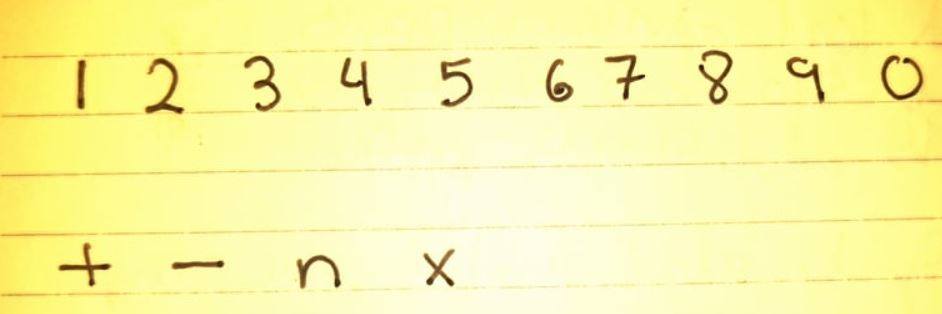 1 2 3 4 5 6 7 8 9 0
+ - n x